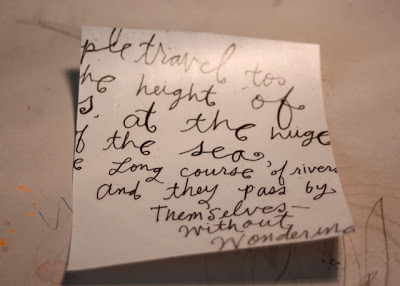 ple travel to
he height of
s, at the huge
f the sea
e Long course of rivers
and they pass by
Themselves—
without
Wondering